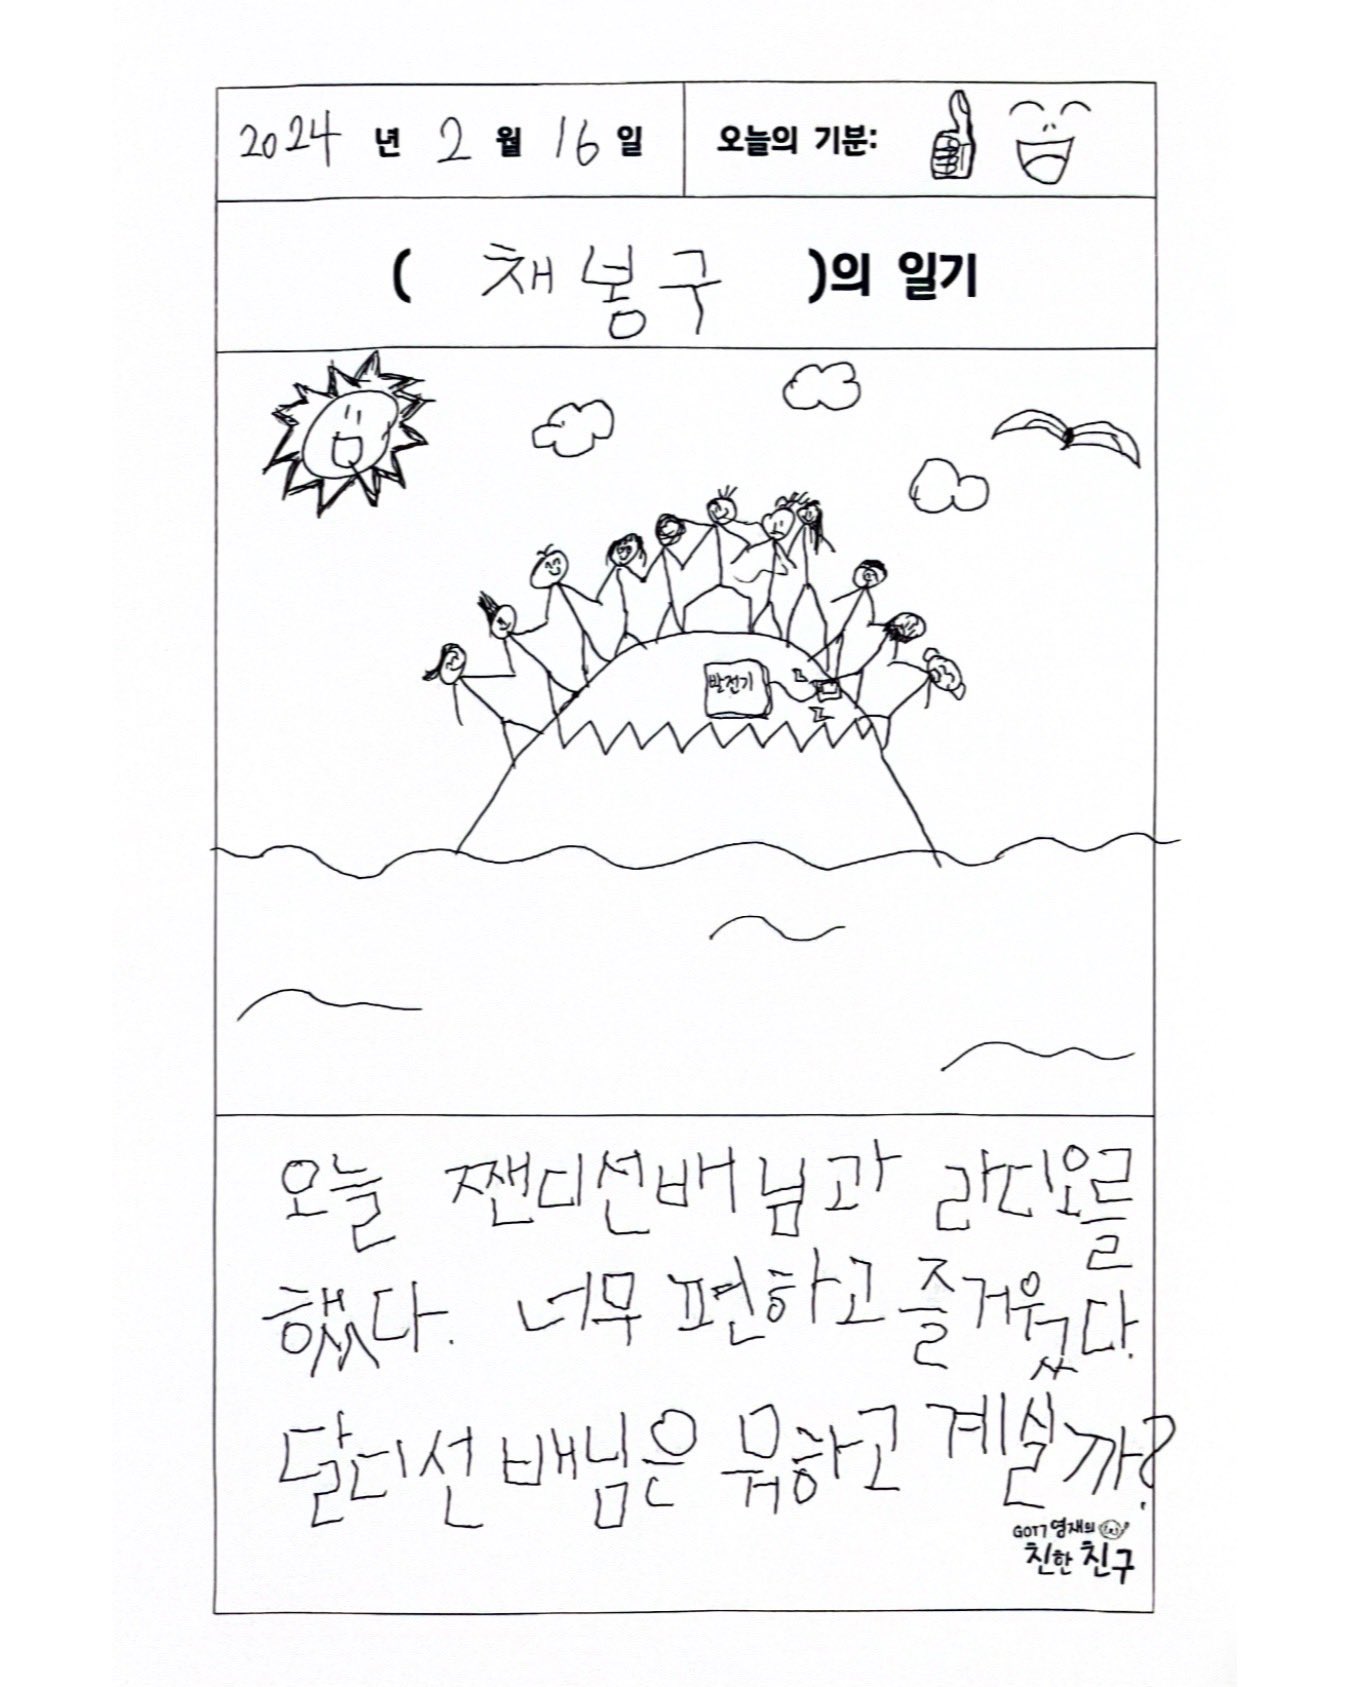 2024 년 2 월 16 일
오늘의 기분:
( 채봉구 )의 일기
발전기
오늘 짼디선배님과 라디오를
했다. 너무 편하고 즐거웠다.
달디선배님은 뭐하고 계실까?
GOT7 영재의
친한친구